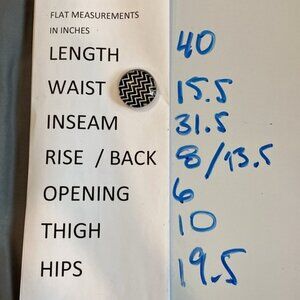 FLAT MEASUREMENTS
IN INCHES
LENGTH 40
WAIST 15.5
INSEAM 31.5
RISE / BACK 8/13.5
OPENING 6
THIGH 10
HIPS 19.5